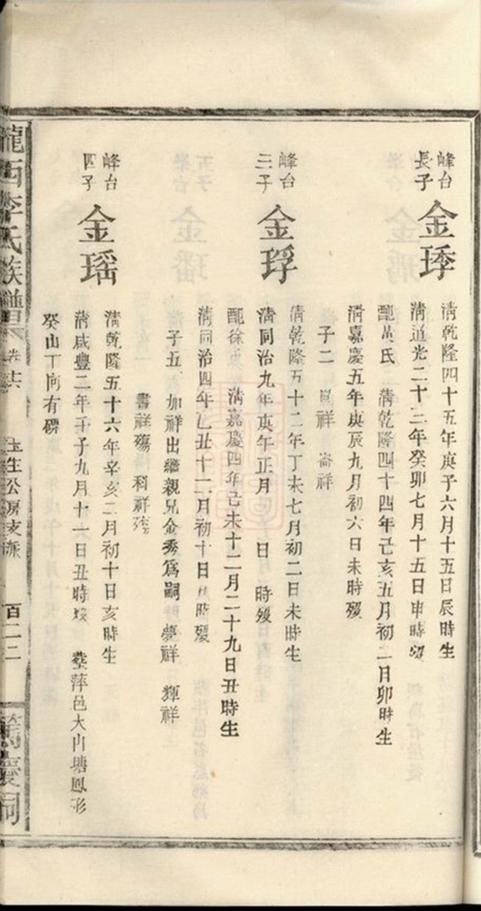 峰台
長子
金琇
清乾隆四十五年庚子六月十五日辰時生
清道光二十三年癸卯七月十五日申時歿
配黃氏 清乾隆四十四年己亥五月初二日卯時生
清嘉慶五年庚辰九月初六日未時歿
子二 祥 崙祥
峰台
三子
金琈
清乾隆五十二年丁未七月初二日未時生
清同治九年庚午正月 日 時歿
配徐氏 清嘉慶四年己未十二月二十九日丑時生
清同治四年乙丑十一月初十日 時歿
子五 加祥出繼親兄金秀為嗣 夢祥 輝祥
書祥殤 科祥殤
峰台
四子
金瑶
清乾隆五十六年辛亥二月初十日亥時生
清咸豐二年壬子九月十一日丑時歿 塟萍邑大內塘鳳形
癸山丁向有碑
隴西李氏族譜
卷
生公房支派
百二二
篤慶